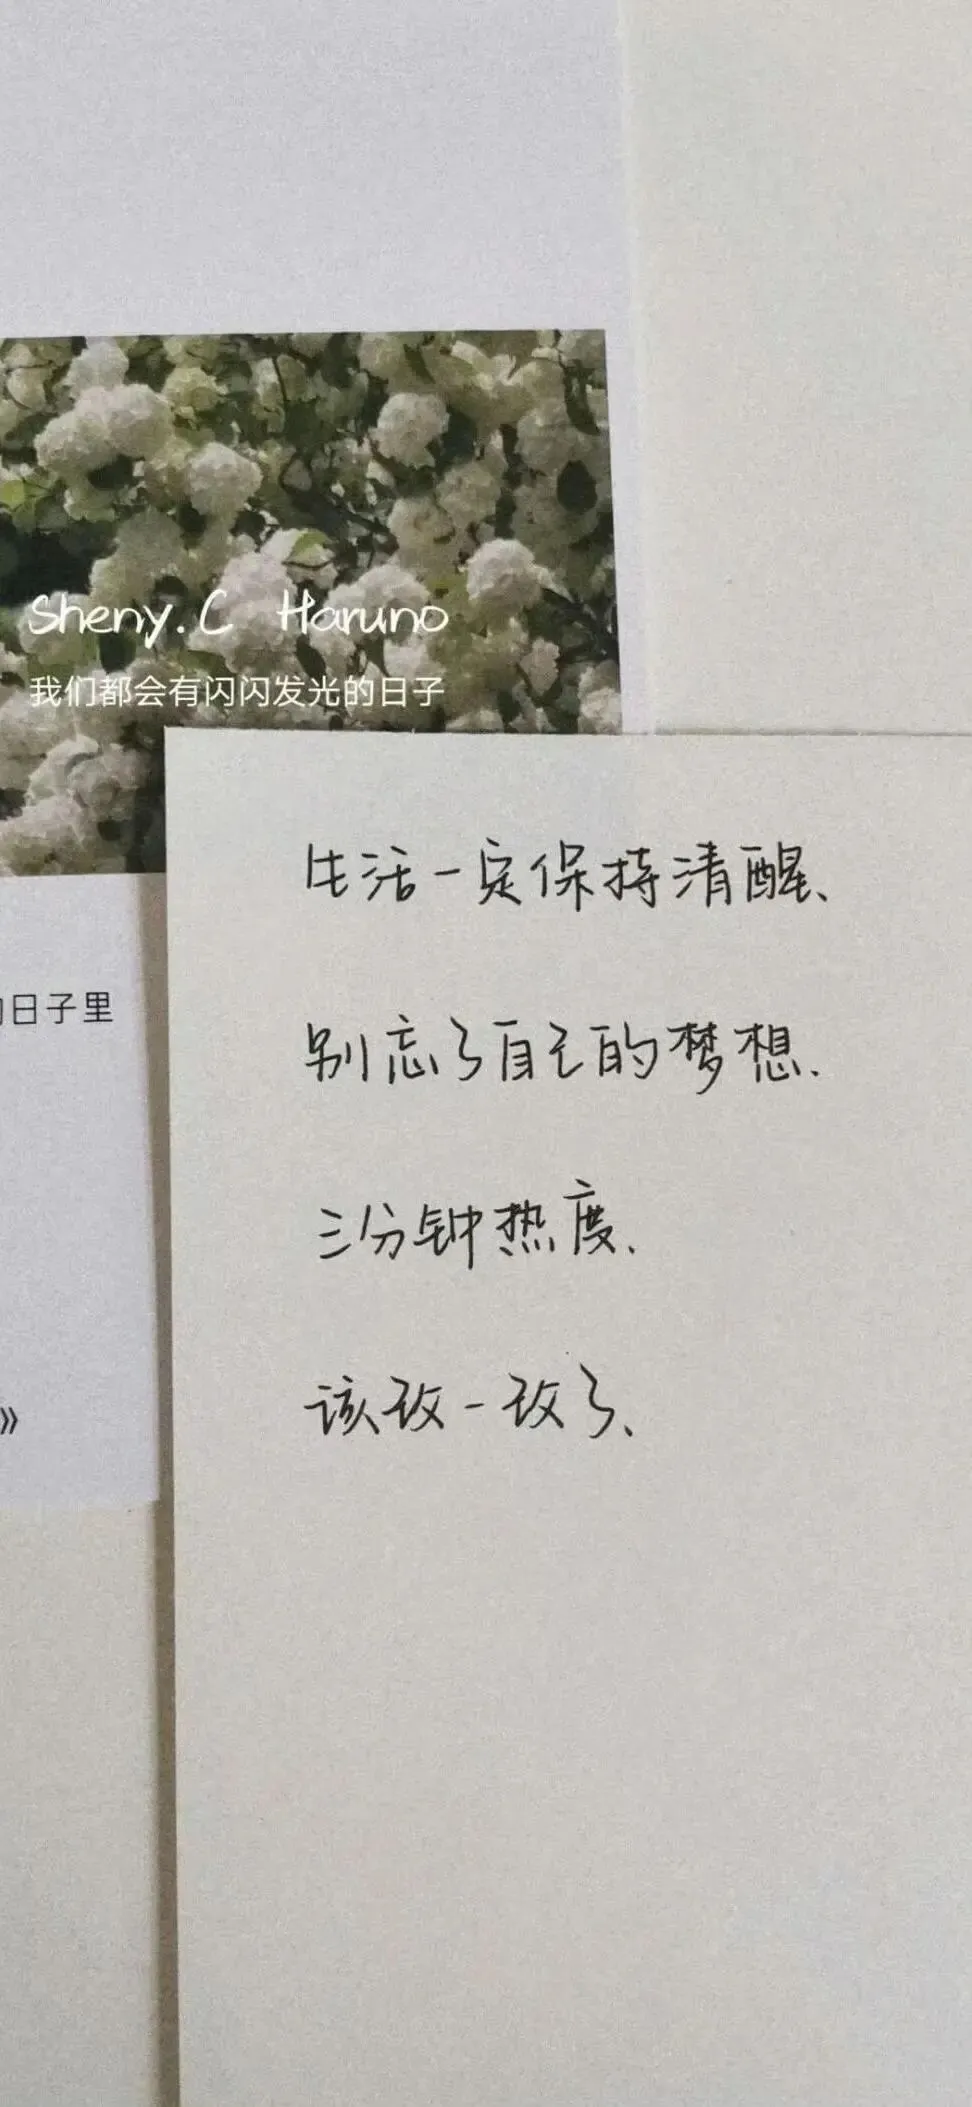 Sheny.C Haruno
我们都会有闪闪发光的日子
日子里
》
生活一定保持清醒、
别忘了自己的梦想.
三分钟热度、
该改一改了、